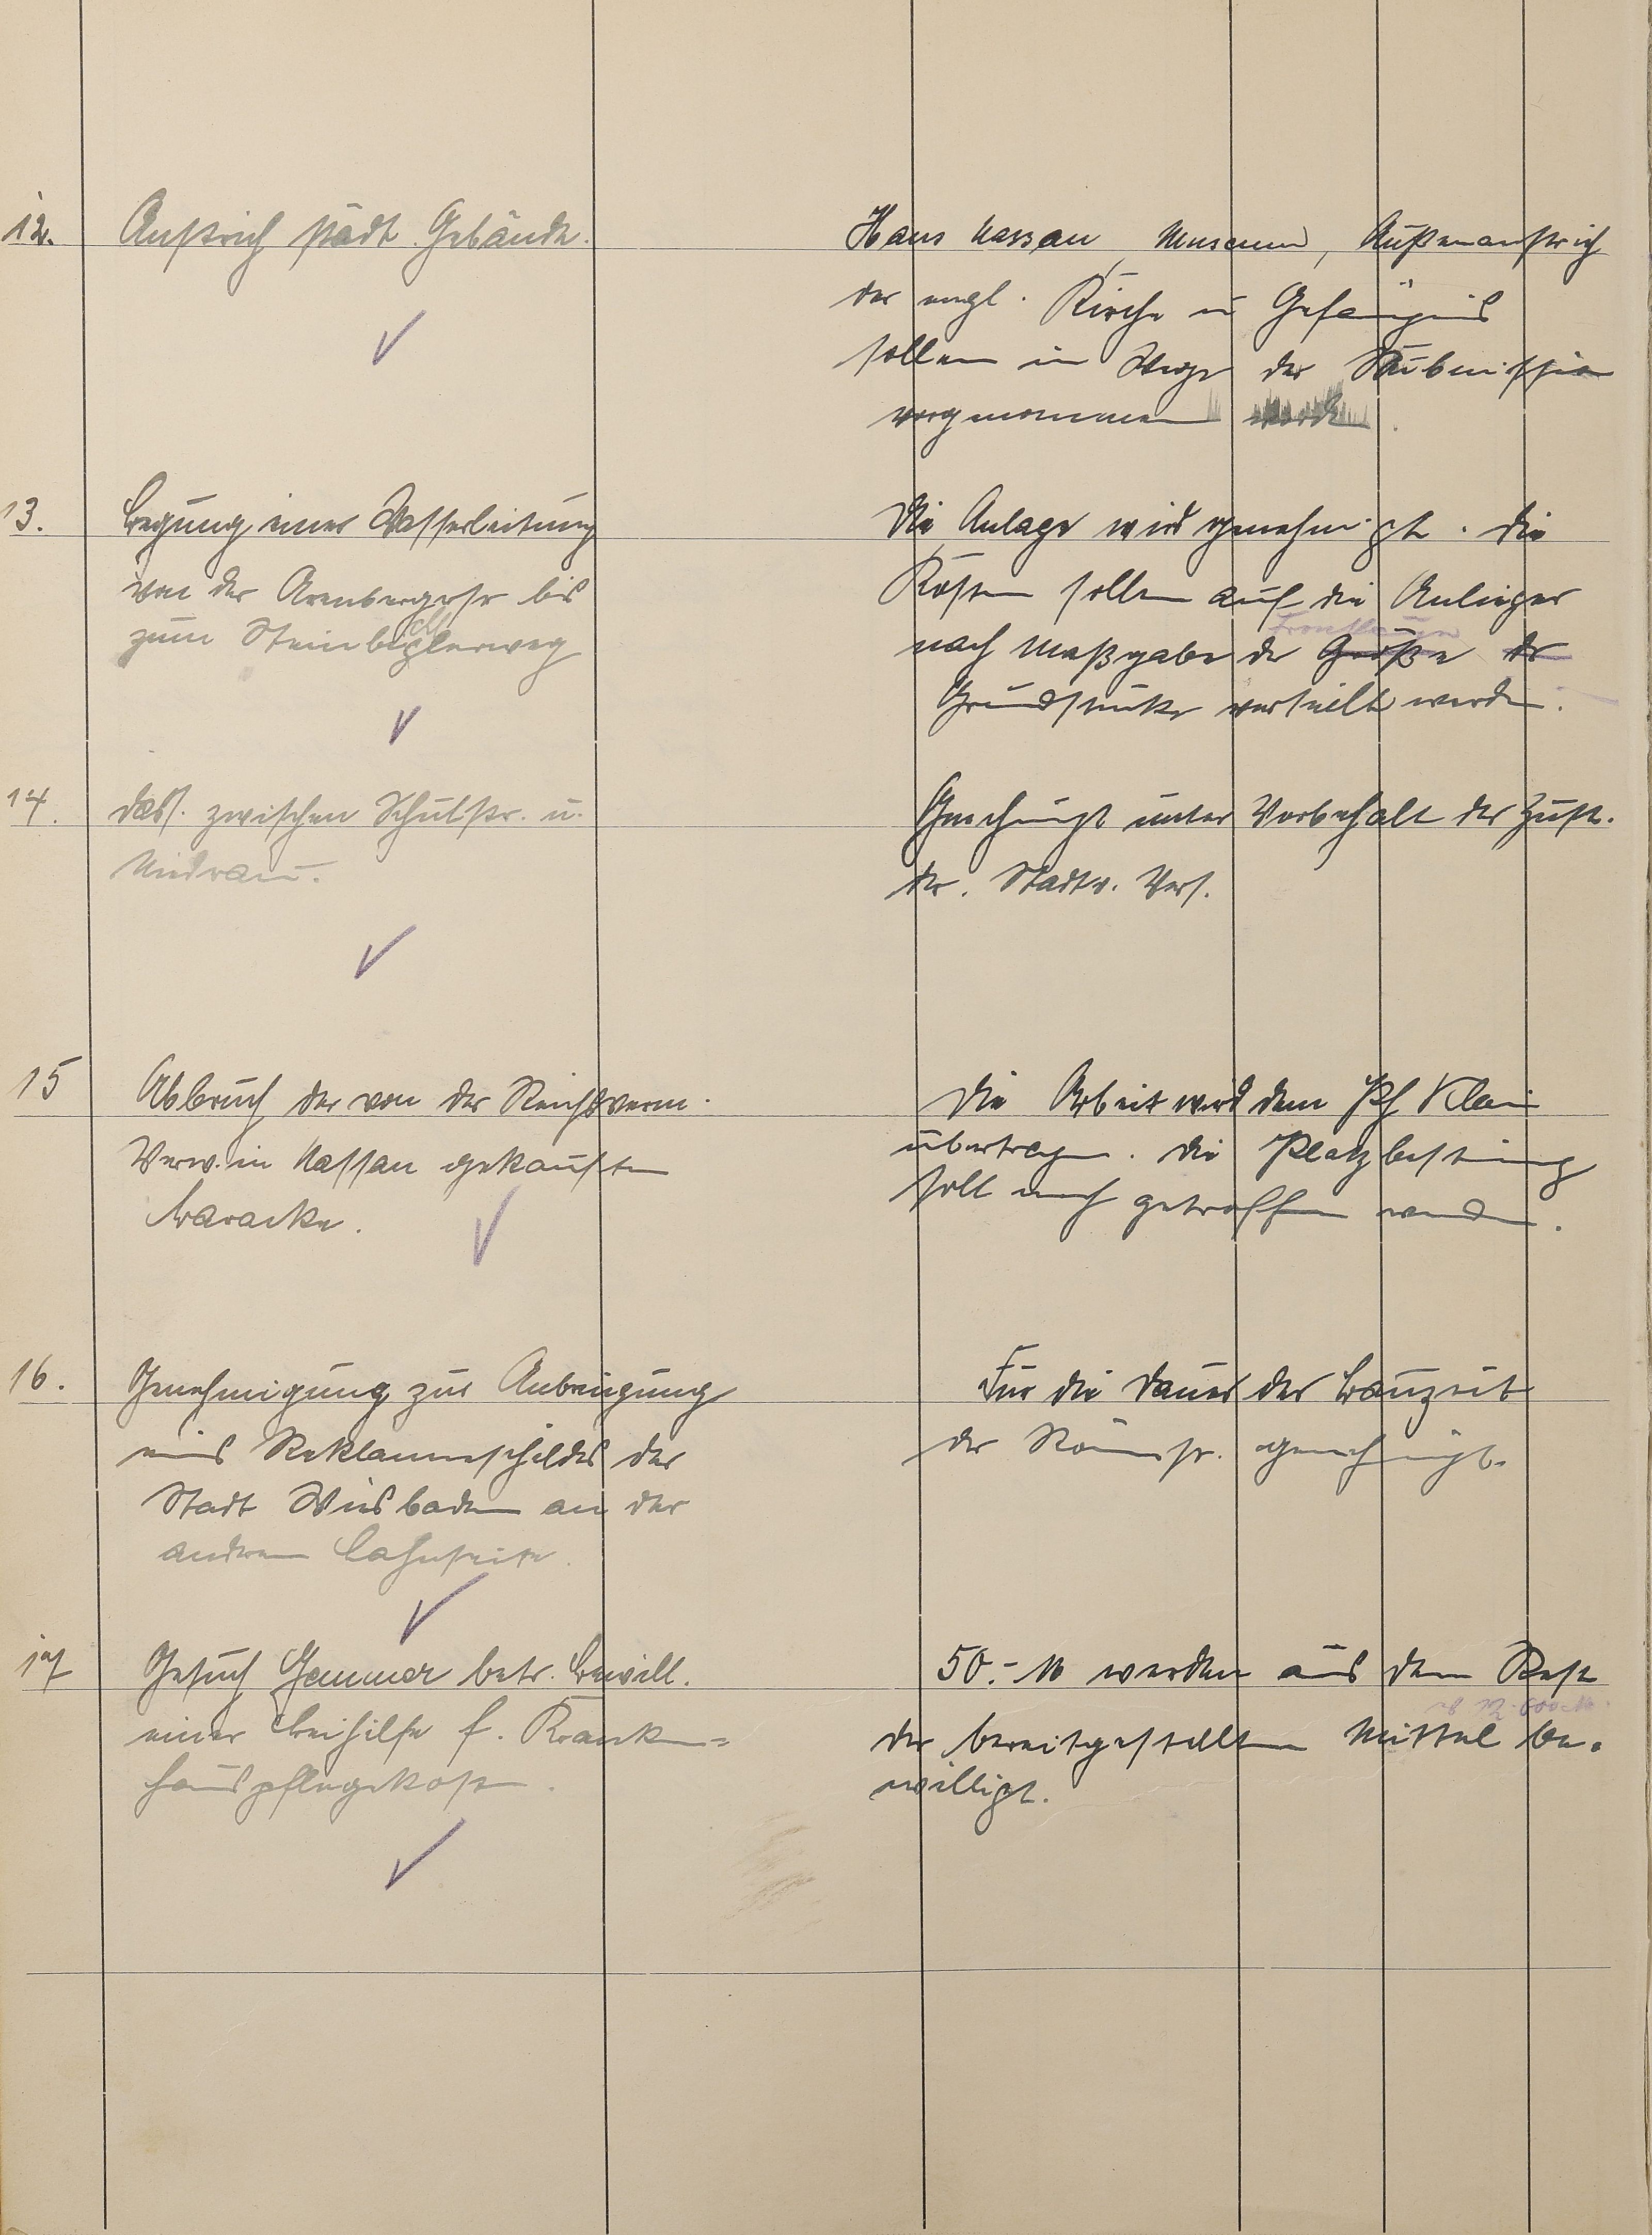 12. Anstrich städt. Gebäude.
Haus Nassau, Museum, Außenanstrich
der engl. Kirche u Gefängnis
sollen im Wege der Submission
vorgenommen werden.
13. Legung einer Wasserleitung
von der Arenbergerstr bis
zum Steinbichlerweg
Die Anlage wird genehmigt. Die
Kosten sollen auf die Anlieger
nach Maßgabe der Größe der
Frontlänge
Grundstücke verteilt werden.
14. Dass. zwischen Schulstr. u.
Genehmigt unter Vorbehalt der Zust.
der Stadtv. Vers.
15 Abbruch der von der Reichsverm.
Verw. in Nassau gekauften
Baracke.
Die Arbeit wird dem Klein
übertragen. Die Platzbestimmung
soll noch getroffen werden.
16. Genehmigung zur Anbringung
eines Reklameschildes der
Stadt Wiesbaden an der
anderen Lahnseite.
Für die Dauer der Bauzeit
der Römerstr. genehmigt.
17 Gesuch Gemmer betr. Bewill.
einer Beihilfe f. Kranken-
hauspflegekosten.
50.- M werden aus dem Rest
der bereitgestellten Mittel be-
willigt.